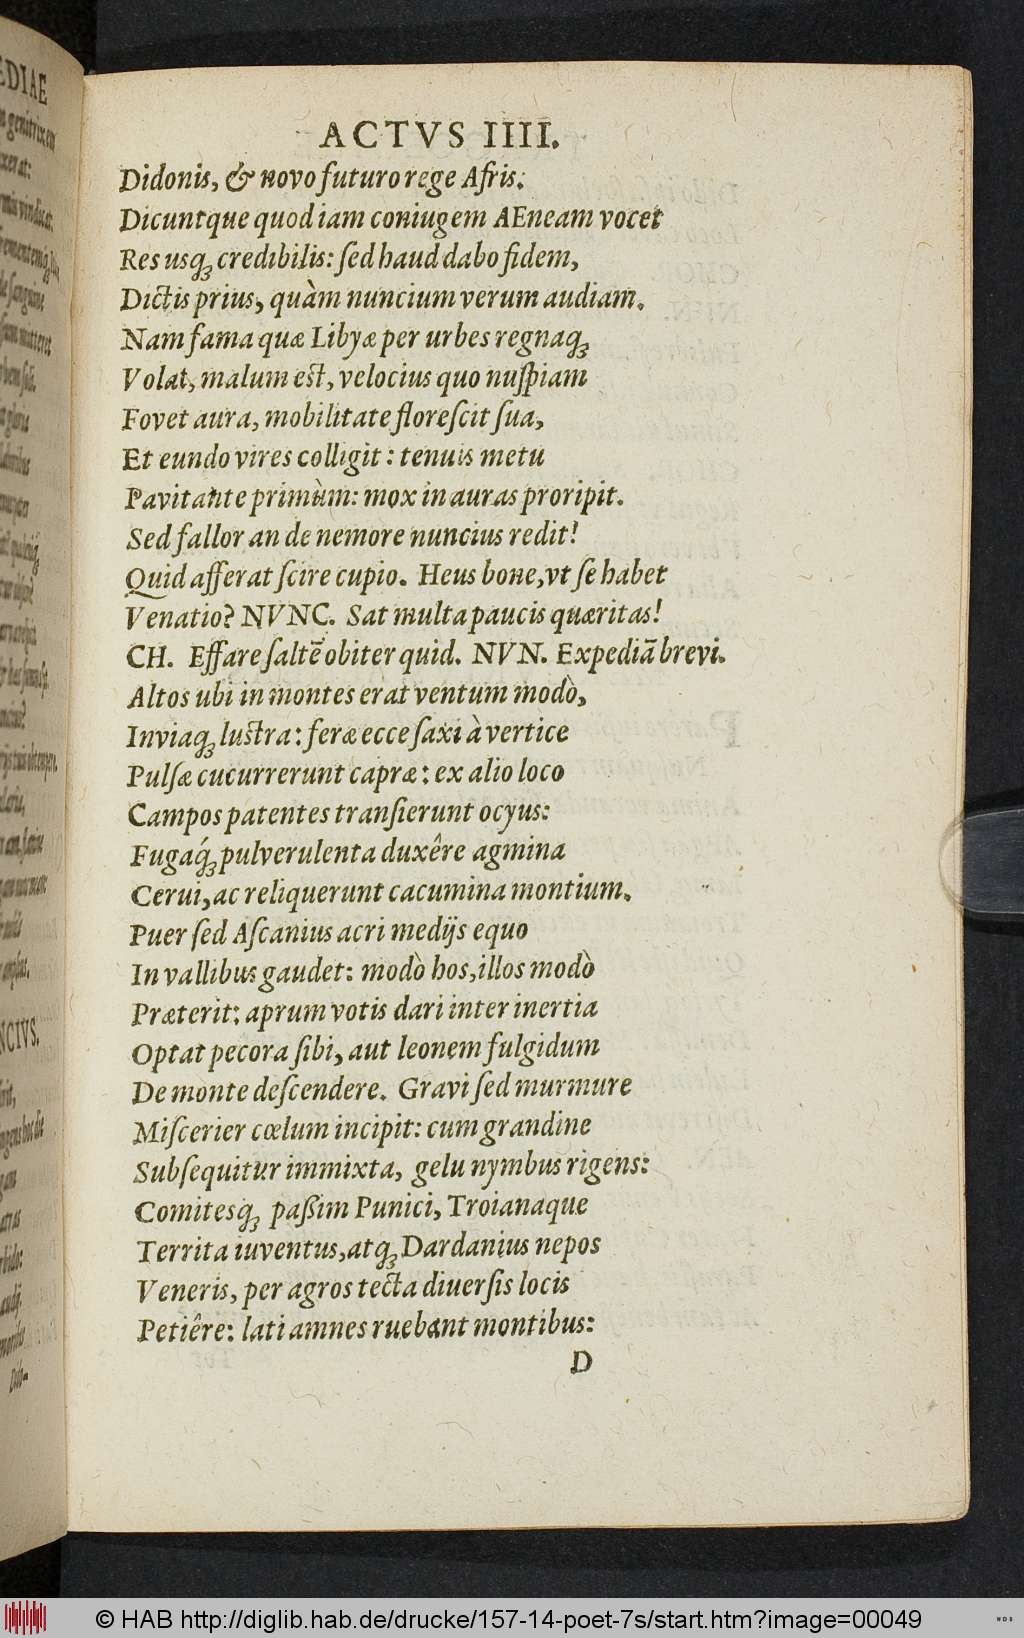 ACTVS IIII.
Didonis, & novo futuro rege Afris:
Dicuntque quod iam coniugem AEneam vocet
Res usq́ꝫ credibilis: ſed haud dabo fidem,
Dictis prius, quàm nuncium verum audiam.
Nam fama quæ Libyæ per urbes regnaqꝫ
Volat, malum est, velocius quo nuſpiam
Fovet aura, mobilitate floreſcit ſua,
Et eundo vires colligit: tenuis metu
Pavitante primùm: mox in auras proripit.
Sed fallor an de nemore nuncius redit!
Quid afferat ſcire cupio. Heus bone, vt ſe habet
Venatio? NVNC. Sat multa paucis quæritas!
CH. Effare ſaltē obiter quid. NVN. Expediā brevi.
Altos ubi in montes erat ventum modò,
Inviaqꝫ lustra: feræ ecce ſaxi à vertice
Pulſæ cucurrerunt capræ: ex alio loco
Campos patentes tranſierunt ocyus:
Fugaq́ꝫ pulverulenta duxêre agmina
Cerui, ac reliquerunt cacumina montium.
Puer ſed Aſcanius acri medijs equo
In vallibus gaudet: modò hos, illos modò
Præterit: aprum votis dari inter inertia
Optat pecora ſibi, aut leonem fulgidum
De monte deſcendere. Gravi ſed murmure
Miſcerier cœlum incipit: cum grandine
Subſequitur immixta, gelu nymbus rigens:
Comitesqꝫ paßim Punici, Troianaque
Territa iuventus, atqꝫ Dardanius nepos
Veneris, per agros tecta diuerſis locis
Petiêre: lati amnes ruebant montibus:
D
© HAB http://diglib.hab.de/drucke/157-14-poet-7s/start.htm?image=00049